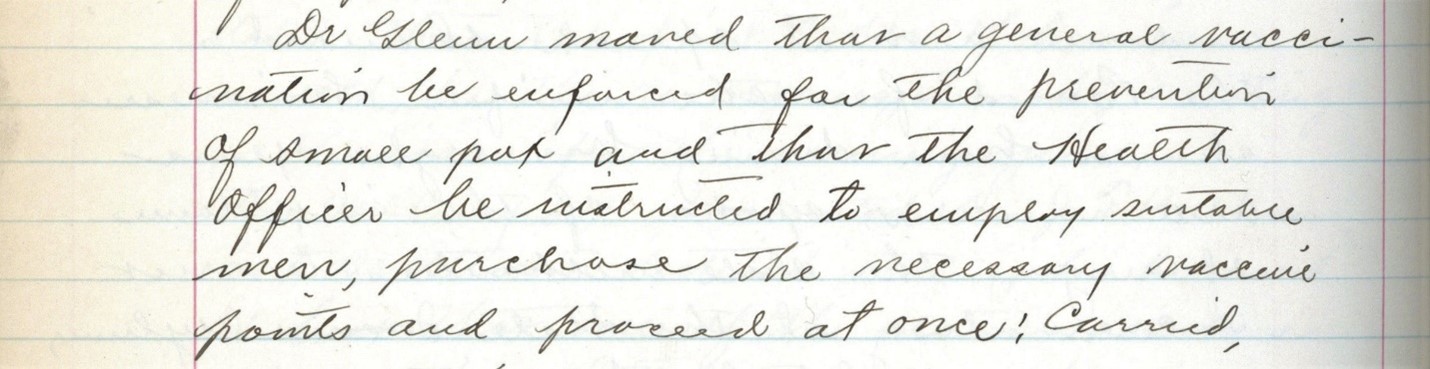 Dr Glenn moved that a general vacci-
nation be enforced for the prevention
of small pox and that the Health
Officer be instructed to employ suitable
men, purchase the necessary vaccine
points and proceed at once; Carried,